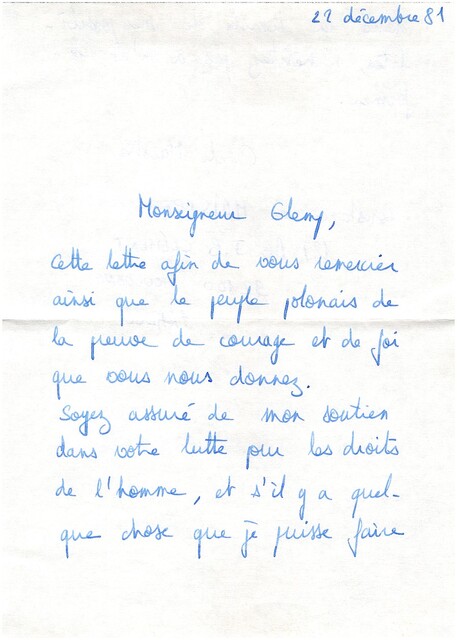 22 décembre 81
Monseigneur Glemp,
Cette lettre afin de vous remercier
ainsi que le peuple polonais de
la preuve de courage et de foi
que vous nous donnez.
Soyez assuré de mon soutien
dans votre lutte pour les droits
de l'homme, et s'il y a quel-
que chose que je puisse faire